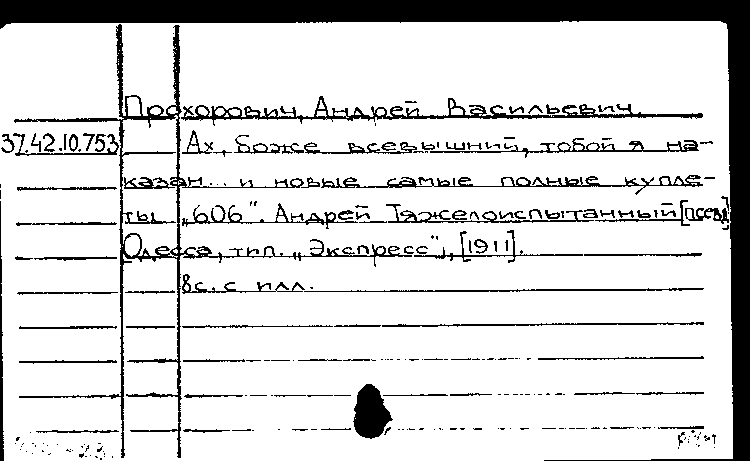 Прохорович, Андрей Васильевич.
37.42.10.753 Ах, Боже всевышний, тобой я на-
казан... и новые самые полные купле-
ты „606". Андрей Тяжелоиспытанный [псевд]
Одесса, тип. „Экспресс", [1911].
8с. с илл.